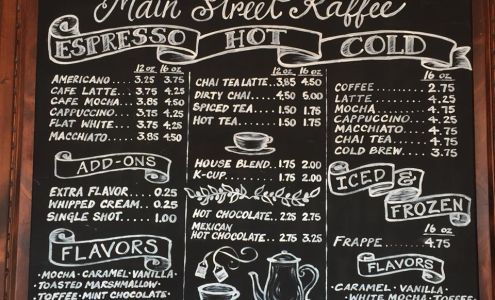 Main Street Kaffee
ESPRESSO HOT COLD
12 oz 16 oz
AMERICANO... 3.25 3.75
CAFE LATTE... 3.75 4.25
CAFE MOCHA... 3.85 4.50
CAPPUCCINO... 3.75 4.25
FLAT WHITE... 3.75 4.25
MACCHIATO... 3.85 4.50
ADD-ONS
EXTRA FLAVOR... 0.25
WHIPPED CREAM... 0.25
SINGLE SHOT... 1.00
FLAVORS
• MOCHA • CARAMEL • VANILLA •
TOASTED MARSHMALLOW
TOFFEE • MINT CHOCOLATE •
12 oz 16 oz
CHAI TEA LATTE... 3.85 4.50
DIRTY CHAI... 4.50 5.00
SPICED TEA... 1.50 1.75
HOT TEA... 1.50 1.75
HOUSE BLEND... 1.75 2.00
K-CUP... 1.75 2.00
HOT CHOCOLATE... 2.25 2.75
MEXICAN
HOT CHOCOLATE... 2.75 3.25
16 oz
COFFEE... 2.75
LATTE... 4.25
MOCHA... 4.75
CAPPUCCINO... 4.25
MACCHIATO... 4.75
CHAI TEA... 4.75
COLD BREW... 3.75
ICED &
FROZEN
16 oz
FRAPPE... 4.75
FLAVORS
CARAMEL • VANILLA •
WHITE MOCHA • TOFFEE